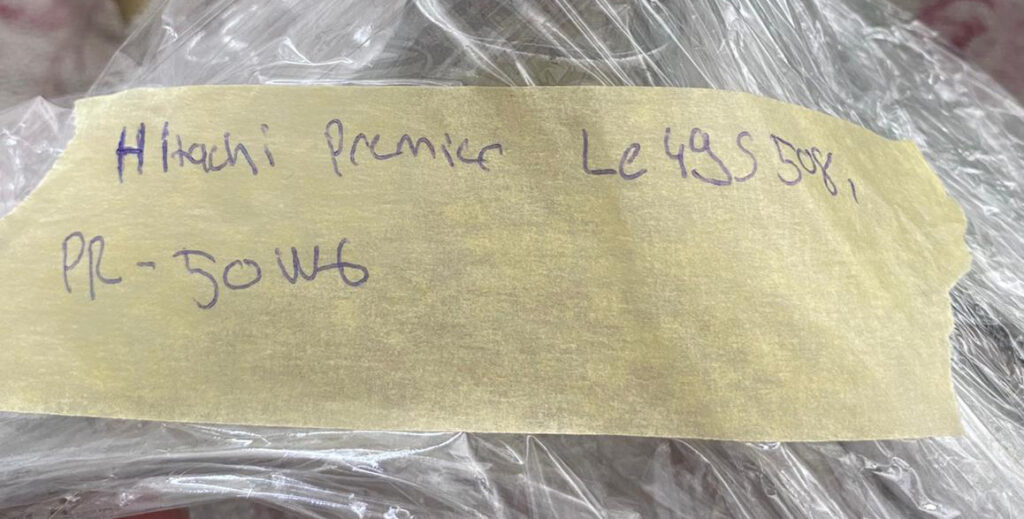 Hitachi Premier Le49S508,
PR-50W6